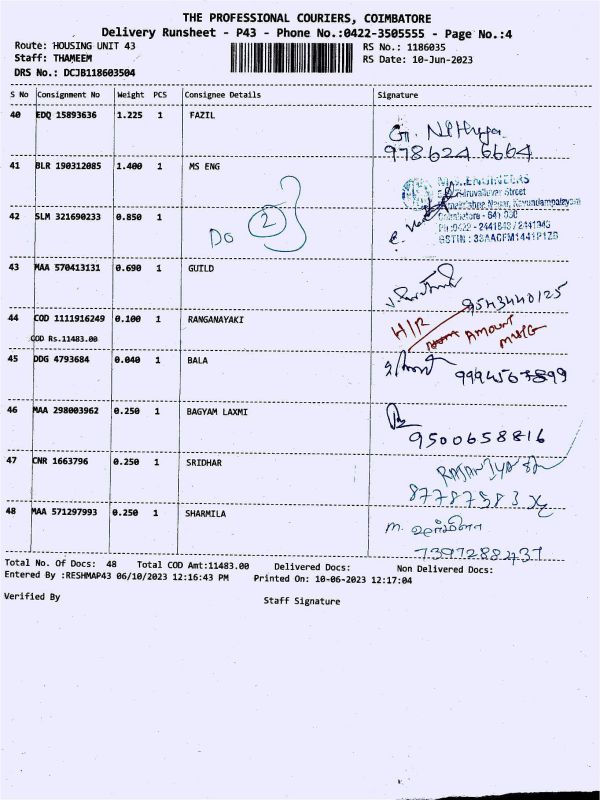 THE PROFESSIONAL COURIERS, COIMBATORE
Delivery Runsheet - P43 - Phone No.:0422-3505555 - Page No.:4
Route: HOUSING UNIT 43
RS No.: 1186035
Staff: THAMEEM
RS Date: 10-Jun-2023
DRS No.: DCJB118603504
S No Consignment No Weight PCS Consignee Details Signature
40 EDQ 15893636 1.225 1 FAZIL
G. Nithya
978624 6664
41 BLR 190312085 1.400 1 MS ENG
42 SLM 321690233 0.850 1
Do 2
Coimbatore - 641 030
43 MAA 570413131 0.690 1 GUILD
9543440125
44 COD 1111916249 0.100 1 RANGANAYAKI
COD Rs.11483.00
H/R
Amount
45 DDG 4793684 0.040 1 BALA
46 MAA 298003962 0.250 1 BAGYAM LAXMI
9500658816
47 CNR 1663796 0.250 1 SRIDHAR
48 MAA 571297993 0.250 1 SHARMILA
m. ஷர்மிளா
7397288437
Total No. Of Docs: 48 Total COD Amt:11483.00 Delivered Docs: Non Delivered Docs:
Entered By :RESHMAP43 06/10/2023 12:16:43 PM Printed On: 10-06-2023 12:17:04
Verified By Staff Signature